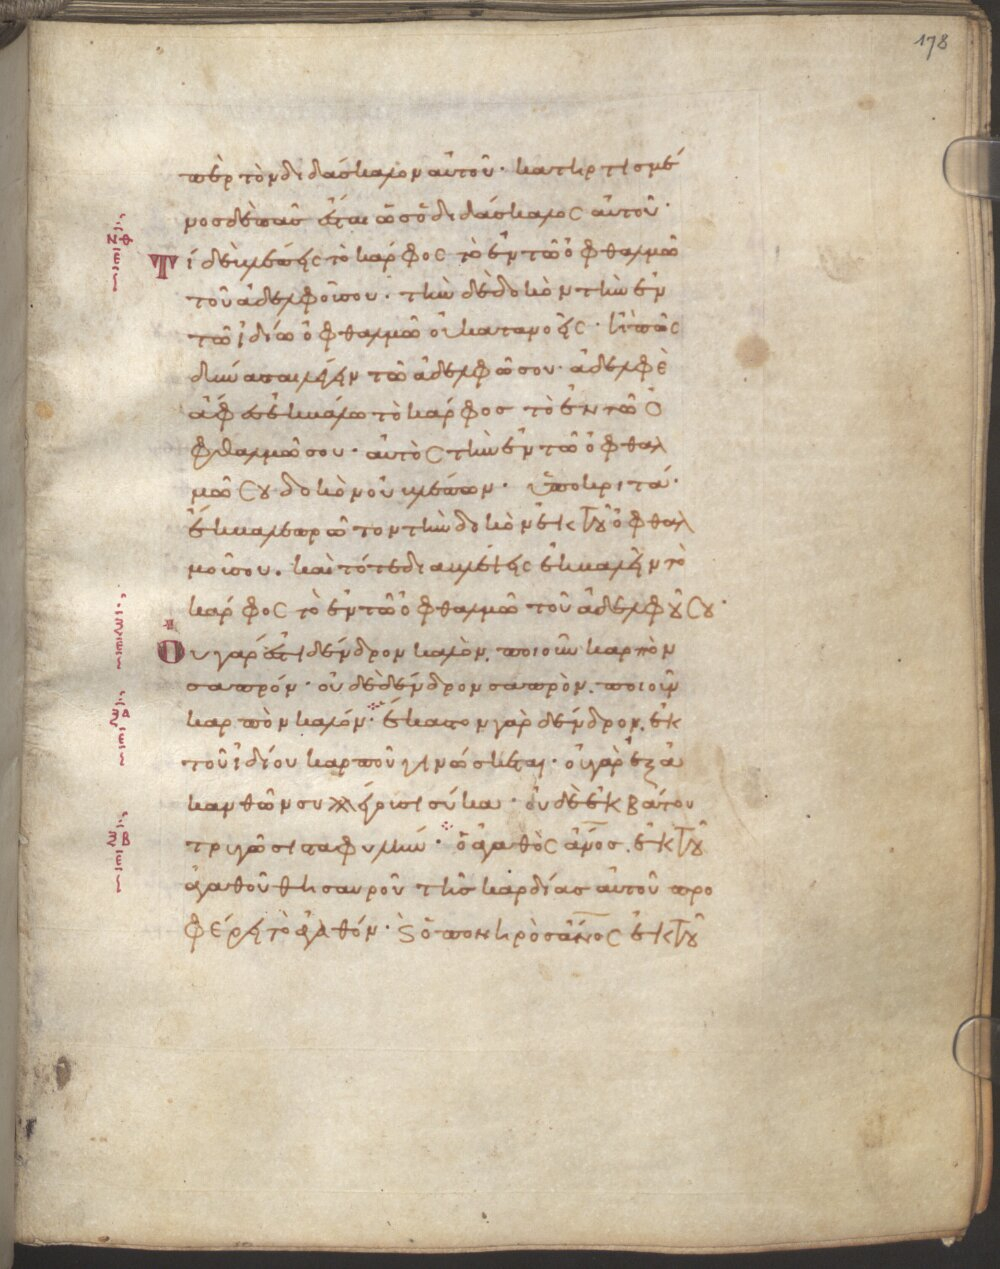 178
πὲρ τὸν διδάσκαλον αὐτοῦ· κατηρτισμέ
νος δὲ πᾶς ἔσται ὡς ὁ διδάσκαλος αὐτοῦ·
Τί δὲ βλέπεις τὸ κάρφος τὸ ἐν τῶ ὀφθαλμῶ
τοῦ ἀδελφοῦ σου· τὴν δὲ δοκὸν τὴν ἐν
τῶ ἰδίω ὀφθαλμῶ οὐ κατανοεῖς· ἢ πῶς
δύνασαι λέγειν τῶ ἀδελφῶ σου· ἀδελφὲ
ἄφες ἐκβάλω τὸ κάρφος τὸ ἐν τῶ ὀ
φθαλμῶ σου· αὐτὸς τὴν ἐν τῶ ὀφθαλ
μῶ σου δοκὸν οὐ βλέπων· ὑποκριτά·
ἔκβαλε πρῶτον τὴν δοκὸν ἐκ τοῦ ὀφθαλ
μοῦ σου. καὶ τότε διαβλέψεις ἐκβαλεῖν τὸ
κάρφος τὸ ἐν τῶ ὀφθαλμῶ τοῦ ἀδελφοῦ σου·
Ου γάρ ἐστι δένδρον καλὸν, ποιοῦν καρπὸν
σαπρόν· οὐδὲ δένδρον σαπρὸν, ποιοῦν
καρπὸν καλόν· ἕκαστον γὰρ δένδρον, ἐκ
τοῦ ἰδίου καρποῦ γινώσκεται· οὐ γὰρ ἐξ ἀ
κανθῶν συλλέγουσι σῦκα· οὐδὲ ἐκ βάτου
τρυγῶσι σταφυλήν· ὁ ἀγαθὸς ἄνος, ἐκ τοῦ
ἀγαθοῦ θησαυροῦ τῆς καρδίας αὐτοῦ προ
φέρει τὸ ἀγαθόν· καὶ ὁ πονηρὸς ἄνος ἐκ τοῦ